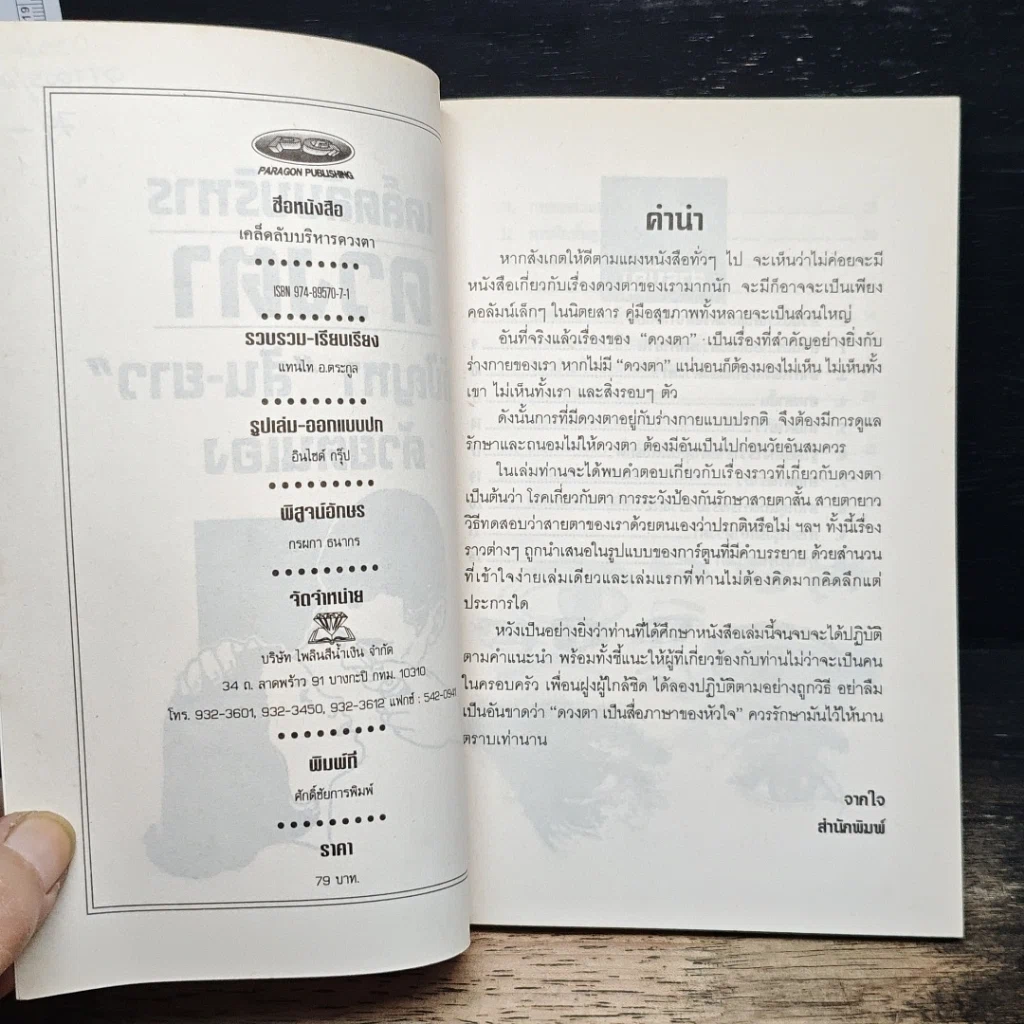 PARAGON PUBLISHING
ชื่อหนังสือ
เคล็ดลับบริหารดวงตา
ISBN 974-89570-7-1
รวบรวม-เรียบเรียง
แทนไท อ.ตระกูล
รูปเล่ม-ออกแบบปก
อินไซด์ กรุ๊ป
พิสูจน์อักษร
กรผกา ธนากร
จัดจำหน่าย
บริษัท ไพลินสีน้ำเงิน จำกัด
34 ถ. ลาดพร้าว 91 บางกะปิ กทม. 10310
โทร. 932-3601, 932-3450, 932-3612 แฟกซ์ : 542-0941
พิมพ์ที่
ศักดิ์ชัยการพิมพ์
ราคา
79 บาท.
คำนำ
หากสังเกตให้ดีตามแผงหนังสือทั่วๆ ไป จะเห็นว่าไม่ค่อยจะมี
หนังสือเกี่ยวกับเรื่องดวงตาของเรามากนัก จะมีก็อาจจะเป็นเพียง
คอลัมน์เล็กๆ ในนิตยสาร คู่มือสุขภาพทั้งหลายจะเป็นส่วนใหญ่
อันที่จริงแล้วเรื่องของ "ดวงตา" เป็นเรื่องที่สำคัญอย่างยิ่งกับ
ร่างกายของเรา หากไม่มี "ดวงตา" แน่นอนก็ต้องมองไม่เห็น ไม่เห็นทั้ง
เขา ไม่เห็นทั้งเรา และสิ่งรอบๆ ตัว
ดังนั้นการที่มีดวงตาอยู่กับร่างกายแบบปรกติ จึงต้องมีการดูแล
รักษาและถนอมไม่ให้ดวงตา ต้องมีอันเป็นไปก่อนวัยอันสมควร
ในเล่มท่านจะได้พบคำตอบเกี่ยวกับเรื่องราวที่เกี่ยวกับดวงตา
เป็นต้นว่า โรคเกี่ยวกับตา การระวังป้องกันรักษาสายตาสั้น สายตายาว
วิธีทดสอบว่าสายตาของเราด้วยตนเองว่าปรกติหรือไม่ ฯลฯ ทั้งนี้เรื่อง
ราวต่างๆ ถูกนำเสนอในรูปแบบของการ์ตูนที่มีคำบรรยาย ด้วยสำนวน
ที่เข้าใจง่ายเล่มเดียวและเล่มแรกที่ท่านไม่ต้องคิดมากคิดลึกแต่
ประการใด
หวังเป็นอย่างยิ่งว่าท่านที่ได้ศึกษาหนังสือเล่มนี้จนจบจะได้ปฏิบัติ
ตามคำแนะนำ พร้อมทั้งชี้แนะให้ผู้ที่เกี่ยวข้องกับท่านไม่ว่าจะเป็นคน
ในครอบครัว เพื่อนฝูงผู้ใกล้ชิด ได้ลองปฏิบัติตามอย่างถูกวิธี อย่าลืม
เป็นอันขาดว่า "ดวงตา เป็นสื่อภาษาของหัวใจ" ควรรักษามันไว้ให้นาน
ตราบเท่านาน
จากใจ
สำนักพิมพ์